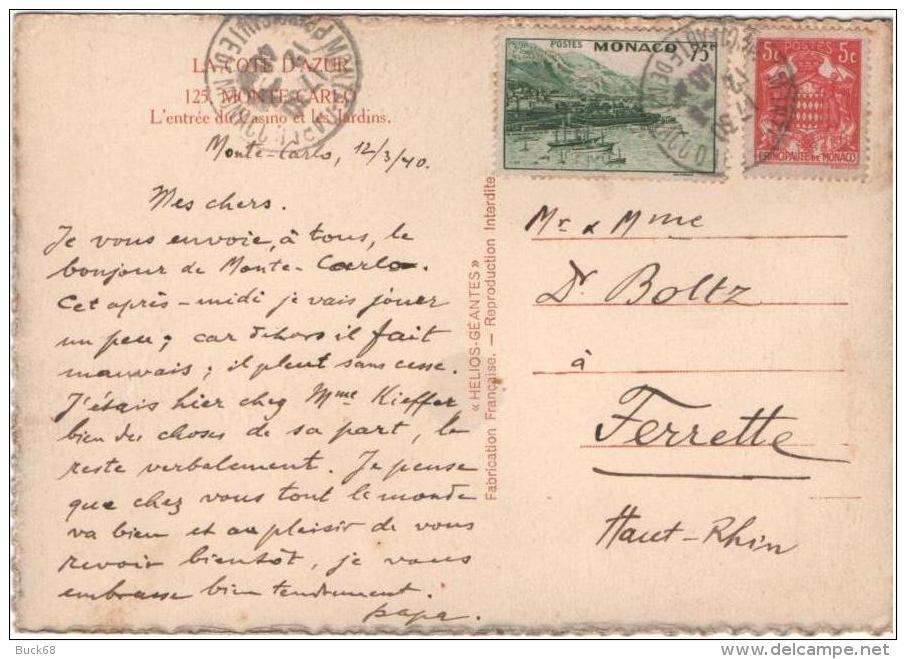 LA COTE D'AZUR
125. MONTE-CARLO
L'entrée du Casino et les Jardins.
Monte-Carlo, 12/3/40.
Mes chers.
Je vous envoie, à tous, le
bonjour de Monte-Carlo.
Cet après-midi je vais jouer
un peu; car dehors il fait
mauvais; il pleut sans cesse.
J'étais hier chez Mme Kieffer
bien des choses de sa part, le
reste verbalement. Je pense
que chez vous tout le monde
va bien et au plaisir de vous
revoir bientôt, je vous
embrasse bien tendrement.
papa.
« HELIOS-GÉANTES »
Fabrication Française. — Reproduction Interdite.
POSTES MONACO 75c
5c POSTES 5c
PRINCIPAUTÉ DE MONACO
Mr & Mme
Dr Boltz
à
Ferrette
Haut-Rhin
Buck68
www.delcampe.net